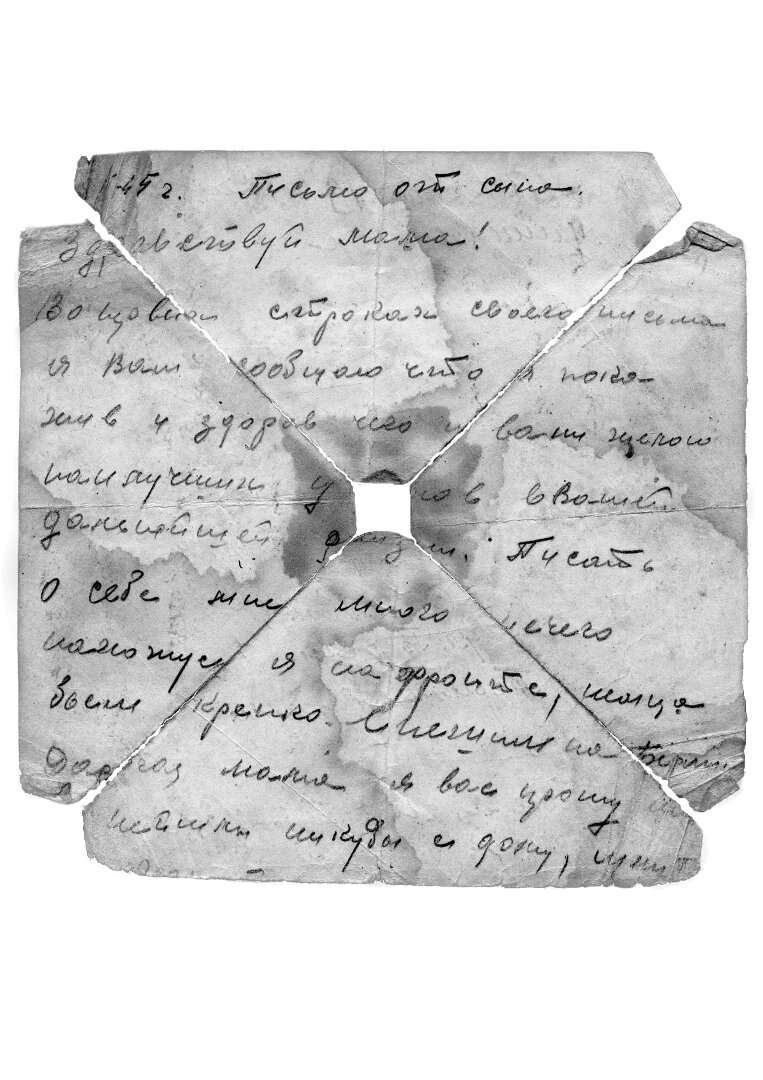 45 г. Письмо от сына.
Здравствуй мама!
Во первых строках своего письма
я Вам сообщаю что я пока
жив и здоров чего и вам желаю
наилучших в Вашей
дальнейшей жизни. Писать
о себе мне много нечего
нахожусь я на фронте, немца
бьем крепко.
Дорогая мама я вас прошу
никуды с дому,